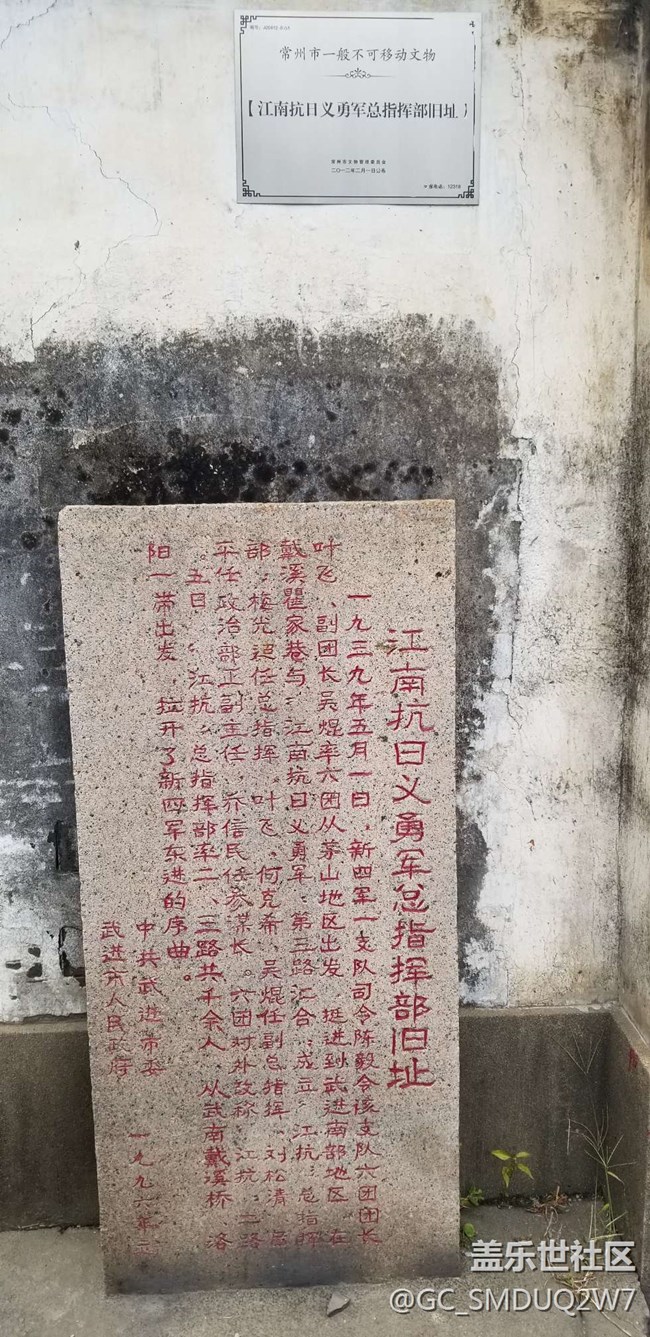 常州市一般不可移动文物
【江南抗日义勇军总指挥部旧址】
常州市文物管理委员会
二〇一二年二月一日公布
江南抗日义勇军总指挥部旧址
一九三九年五月一日，新四军一支队司令陈毅令该支队六团团长
叶飞、副团长吴焜率六团从茅山地区出发，挺进到武进南部地区，在
戴溪瞿家巷与“江南抗日义勇军”第三路汇合，成立“江抗”总指挥
部，梅光迪任总指挥。叶飞、何克希、吴焜任副总指挥。刘松清、
平任政治部正副主任，乔信民任参谋长。六团对外改称“江抗”二路
。五日，“江抗”总指挥部率二、三路共千余人，从武南戴溪桥、洛
阳一带出发，拉开了新四军东进的序曲。
中共武进市委
武进市人民政府
一九九六年
盖乐世社区
@GC_SMDUQ2W7